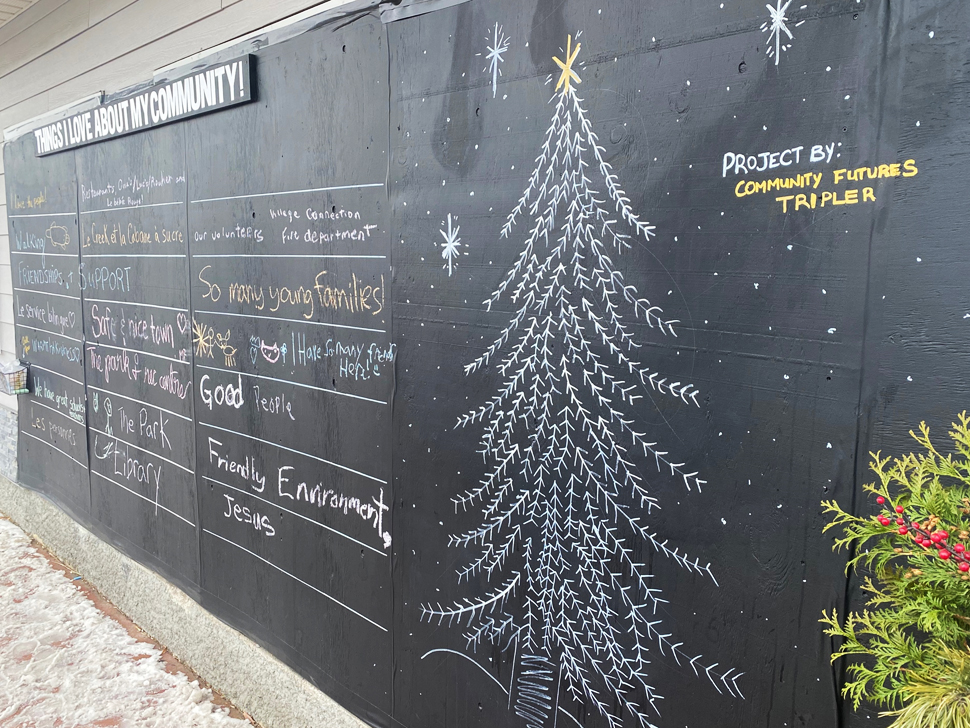 THINGS I LOVE ABOUT MY COMMUNITY!
I love the people!
Walking
FRIENDSHIPS & SUPPORT
Le service bilingue
We have great schools
Les
Restaurants,
Le bébé
Le Creek et la Cabane à sucre
Safe & nice town
The park & rec centre
The Park
Library
Village Connection
our volunteers Fire department
So many young families!
I Have So many friends
Here!
Good People
Friendly Environment
Jesus
PROJECT BY:
COMMUNITY FUTURES
TRIPLER